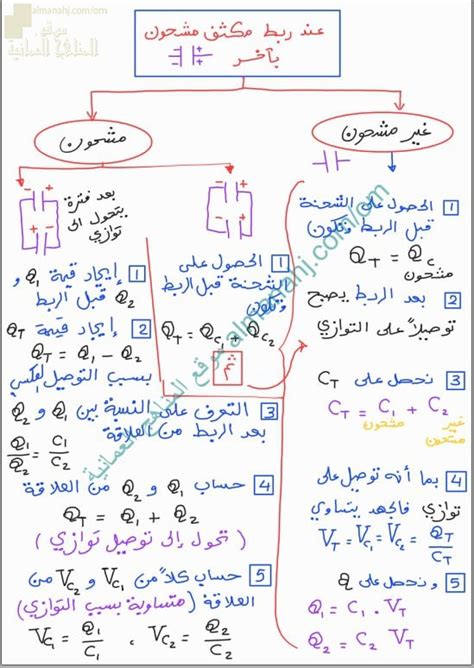 almanahj.com/om
موقع
المناهج العمانية
عند ربط مكثف مشحون
بآخر
غير مشحون
1 الحصول على الشحنة
قبل الربط وتكون
Q_T = Q_C
مشحون
2 بعد الربط يصبح
توصيلاً على التوازي
3 نحصل على C_T
C_T = C_1 + C_2
مشحون
غير
مشحون
4 بما أنه توصيل على
توازي فالجهد يتساوى
V_T = V_C1 = V_C2 = Q_T / C_T
5 ونحصل على Q
Q_1 = C_1 . V_T
Q_2 = C_2 . V_T
مشحون
- +
- +
1 الحصول على
الشحنة قبل الربط
وتكون
Q_T = Q_C1 + Q_C2
ثم
- +
+ -
بعد فترة
يتحول الى
توازي
1 إيجاد قيمة Q_1 و
Q_2 قبل الربط
2 إيجاد قيمة Q_T
Q_T = Q_1 - Q_2
بسبب التوصيل العكسي
3 التعرف على النسبة بين Q_1 و Q_2
بعد الربط من العلاقة
Q_1 / Q_2 = C_1 / C_2
4 حساب Q_1 و Q_2 من العلاقة
Q_T = Q_1 + Q_2
(تحول إلى توصيل توازي)
5 حساب كلاً من V_C1 و V_C2 من
العلاقة (متساوية بسبب التوازي)
V_C1 = Q_1 / C_1 , V_C2 = Q_2 / C_2
موقع المناهج العمانية almanahj.com/om